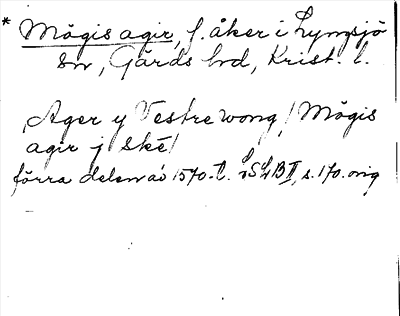 * Mögis agir, f. åker i Lyngsjö
sn, Gärds hd, Krist. l.
Ager y Vestre wong / Mögis
agir j ské /
förra delen av 1570-t. LSLB II, s. 170. orig